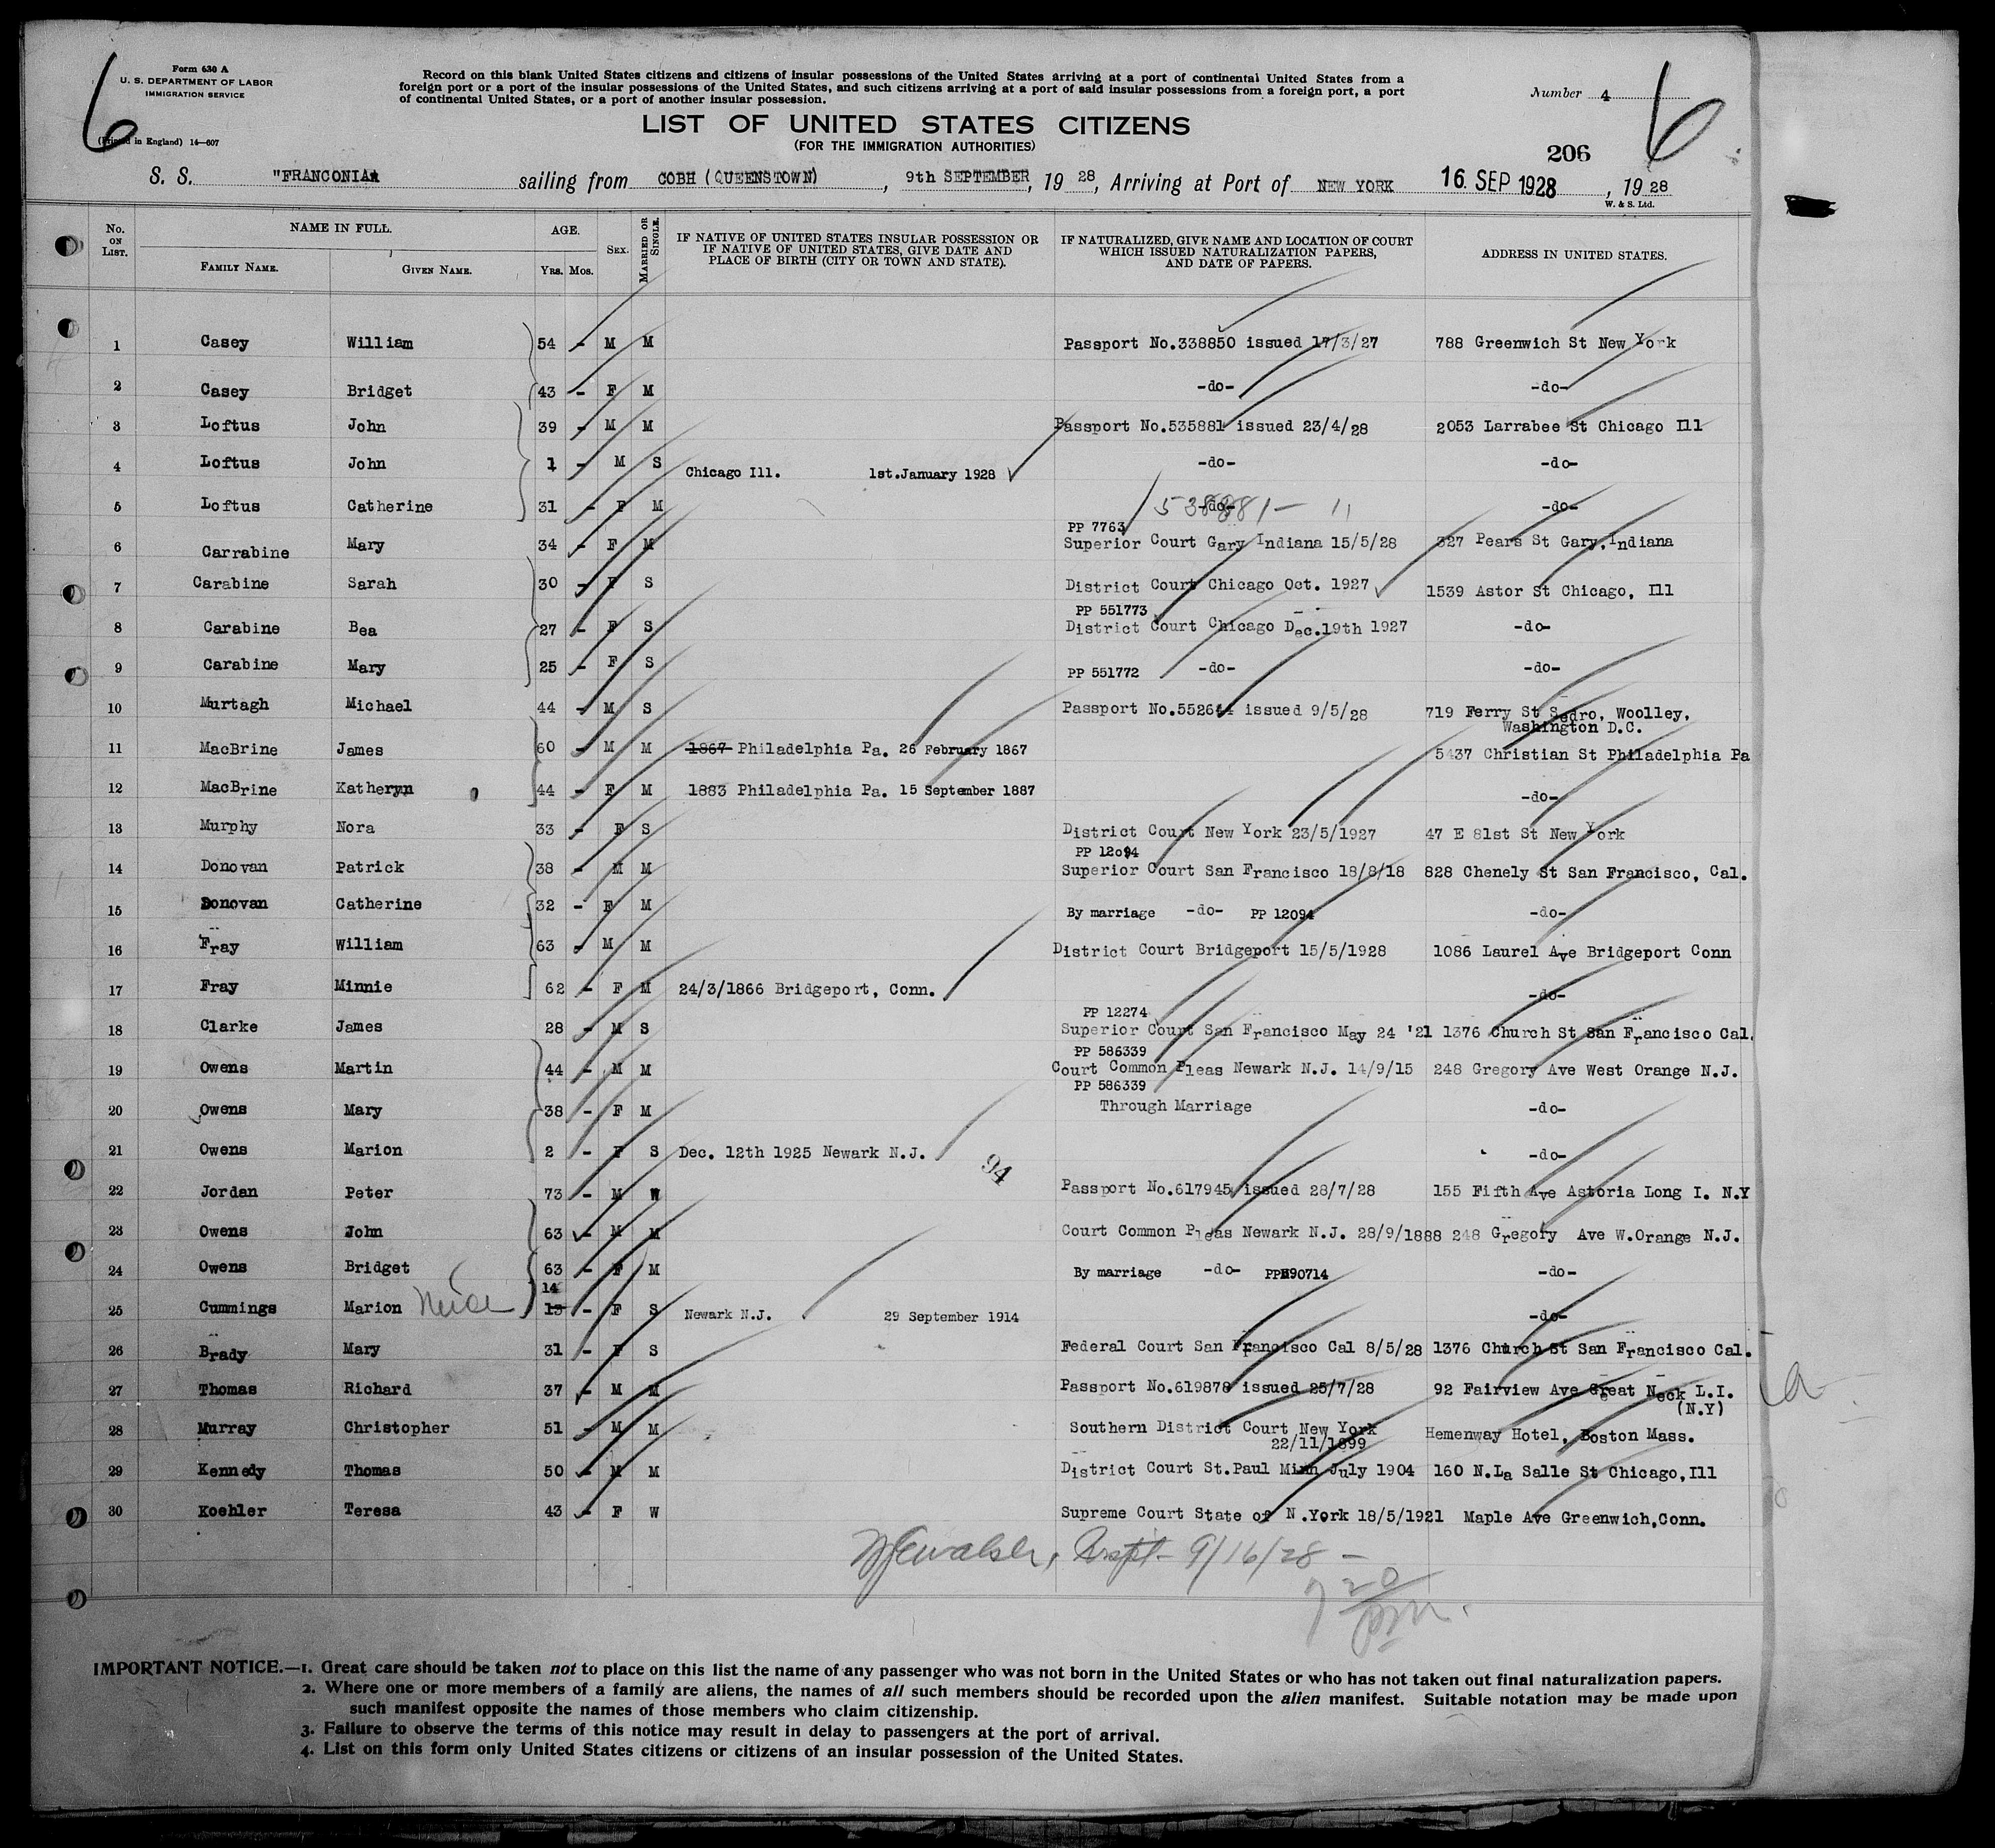 6
Form 630 A
U. S. DEPARTMENT OF LABOR
IMMIGRATION SERVICE
(Printed in England) 14—607
Record on this blank United States citizens and citizens of insular possessions of the United States arriving at a port of continental United States from a
foreign port or a port of the insular possessions of the United States, and such citizens arriving at a port of said insular possessions from a foreign port, a port
of continental United States, or a port of another insular possession.
Number 4
6
LIST OF UNITED STATES CITIZENS
(FOR THE IMMIGRATION AUTHORITIES)
206
S. S. "FRANCONIA" sailing from COBH (QUEENSTOWN), 9th SEPTEMBER, 19 28, Arriving at Port of NEW YORK 16 SEP 1928, 19 28
W. & S. Ltd.
No. ON LIST. NAME IN FULL. FAMILY NAME. GIVEN NAME. AGE. YRS. MOS. SEX. MARRIED OR SINGLE. IF NATIVE OF UNITED STATES INSULAR POSSESSION OR IF NATIVE OF UNITED STATES, GIVE DATE AND PLACE OF BIRTH (CITY OR TOWN AND STATE). IF NATURALIZED, GIVE NAME AND LOCATION OF COURT WHICH ISSUED NATURALIZATION PAPERS, AND DATE OF PAPERS. ADDRESS IN UNITED STATES.
1 Casey William 54 - M M Passport No.338850 issued 17/3/27 788 Greenwich St New York
2 Casey Bridget 43 - F M -do- -do-
3 Loftus John 39 - M M Passport No.535881 issued 23/4/28 2053 Larrabee St Chicago Ill
4 Loftus John 1 - M S Chicago Ill. 1st.January 1928 -do- -do-
5 Loftus Catherine 31 - F M -do- -do-
PP 7763
6 Carrabine Mary 34 - F M Superior Court Gary Indiana 15/5/28 327 Pears St Gary, Indiana
7 Carabine Sarah 30 - F S District Court Chicago Oct. 1927 1539 Astor St Chicago, Ill
PP 551773
8 Carabine Bea 27 - F S District Court Chicago Dec.19th 1927 -do-
9 Carabine Mary 25 - F S PP 551772 -do- -do-
10 Murtagh Michael 44 - M S Passport No. issued 9/5/28 719 Ferry St Sedro, Woolley,
Washington D.C.
11 MacBrine James 60 - M M 1867 Philadelphia Pa. 26 February 1867 5437 Christian St Philadelphia Pa
12 MacBrine Katheryn 44 - F M 1883 Philadelphia Pa. 15 September 1887 -do-
13 Murphy Nora 33 - F S District Court New York 23/5/1927 47 E 81st St New York
PP 12094
14 Donovan Patrick 38 - M M Superior Court San Francisco 18/8/18 828 Chenely St San Francisco, Cal.
15 Donovan Catherine 32 - F M By marriage -do- PP 12094 -do-
16 Fray William 63 - M M District Court Bridgeport 15/5/1928 1086 Laurel Ave Bridgeport Conn
17 Fray Minnie 62 - F M 24/3/1866 Bridgeport, Conn. -do-
PP 12274
18 Clarke James 28 - M S Superior Court San Francisco May 24 '21 1376 Church St San Francisco Cal.
PP 586339
19 Owens Martin 44 - M M Court Common Pleas Newark N.J. 14/9/15 248 Gregory Ave West Orange N.J.
PP 586339
20 Owens Mary 38 - F M Through Marriage -do-
21 Owens Marion 2 - F S Dec. 12th 1925 Newark N.J. -do-
94
22 Jordan Peter 73 - M W Passport No.617945 issued 28/7/28 155 Fifth Ave Astoria Long I. N.Y
23 Owens John 63 - M M Court Common Pleas Newark N.J. 28/9/1888 248 Gregory Ave W.Orange N.J.
24 Owens Bridget 63 - F M By marriage -do- -do-
14
25 Cummings Marion Neice 13 - F S Newark N.J. 29 September 1914 -do-
26 Brady Mary 31 - F S Federal Court San Francisco Cal 8/5/28 1376 Church St San Francisco Cal.
27 Thomas Richard 37 - M M Passport No.619878 issued 25/7/28 92 Fairview Ave Great Neck L.I.
(N.Y)
28 Murray Christopher 51 - M M Southern District Court New York Hemenway Hotel, Boston Mass.
22/11/1899
29 Kennedy Thomas 50 - M M District Court St.Paul Minn July 1904 160 N.La Salle St Chicago,Ill
30 Koehler Teresa 43 - F W Supreme Court State of N.York 18/5/1921 Maple Ave Greenwich,Conn.
9/16/28 -
7 20
pm.
IMPORTANT NOTICE.—1. Great care should be taken not to place on this list the name of any passenger who was not born in the United States or who has not taken out final naturalization papers.
2. Where one or more members of a family are aliens, the names of all such members should be recorded upon the alien manifest. Suitable notation may be made upon
such manifest opposite the names of those members who claim citizenship.
3. Failure to observe the terms of this notice may result in delay to passengers at the port of arrival.
4. List on this form only United States citizens or citizens of an insular possession of the United States.